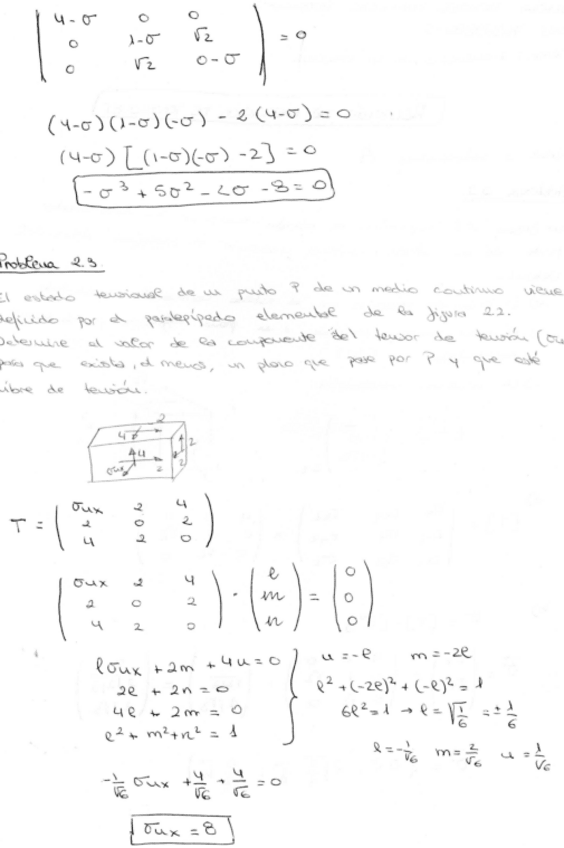 | 4-σ 0 0 |
| 0 1-σ √2 | = 0
| 0 √2 0-σ |
(4-σ)(1-σ)(-σ) - 2(4-σ) = 0
(4-σ)[(1-σ)(-σ) - 2] = 0
-σ³ + 5σ² - 2σ - 8 = 0
Problema 2.3
El estado tensional de un punto P de un medio continuo viene
definido por el paralepípedo elemental de la figura 2.2.
Determine el valor de la componente del tensor de tensión (σux
para que exista, al menos, un plano que pase por P y que esté
libre de tensión.
4 2
σux 4 2 2 2
T = ( σux 2 4
2 0 2
4 2 0 )
( σux 2 4 ) ( l ) ( 0 )
( 2 0 2 ) · ( m ) = ( 0 )
( 4 2 0 ) ( n ) ( 0 )
lσux + 2m + 4u = 0 u = -l m = -2l
2l + 2n = 0 l² + (-2l)² + (-l)² = 1
4l + 2m = 0 6l² = 1 → l = √1/6 = ± 1/6
l² + m² + n² = 1
l = -1/√6 m = 2/√6 u = 1/√6
-1/√6 σux + 4/√6 + 4/√6 = 0
σux = 8